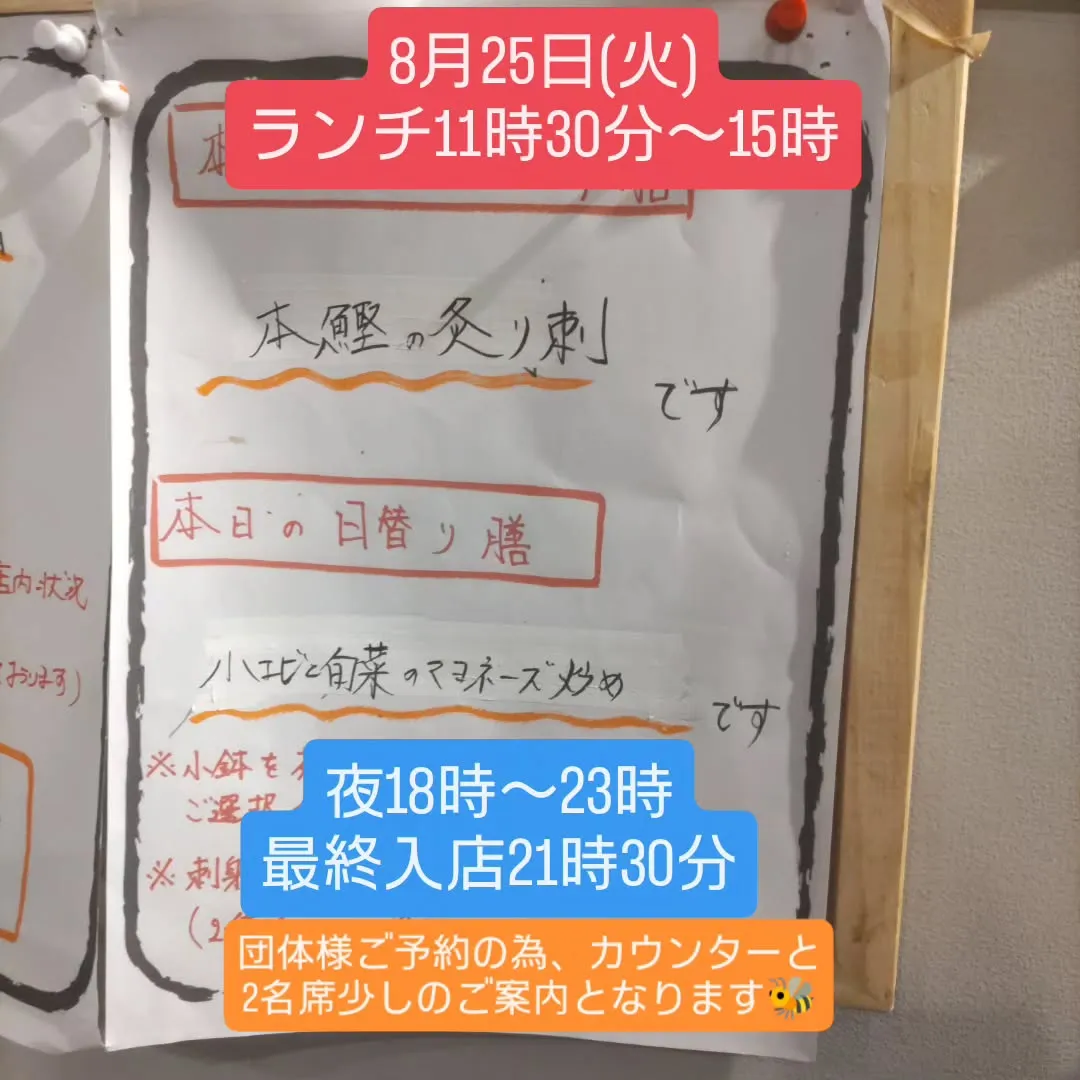 8月25日(火)
ランチ11時30分〜15時
本
膳
本鰹の炙り刺
です
本日の日替り膳
店内状況
ております)
小エビと旬菜のマヨネーズ炒め
です
※小鉢を
ご選択
※刺身
(2
夜18時〜23時
最終入店21時30分
団体様ご予約の為、カウンターと
2名席少しのご案内となります🐝